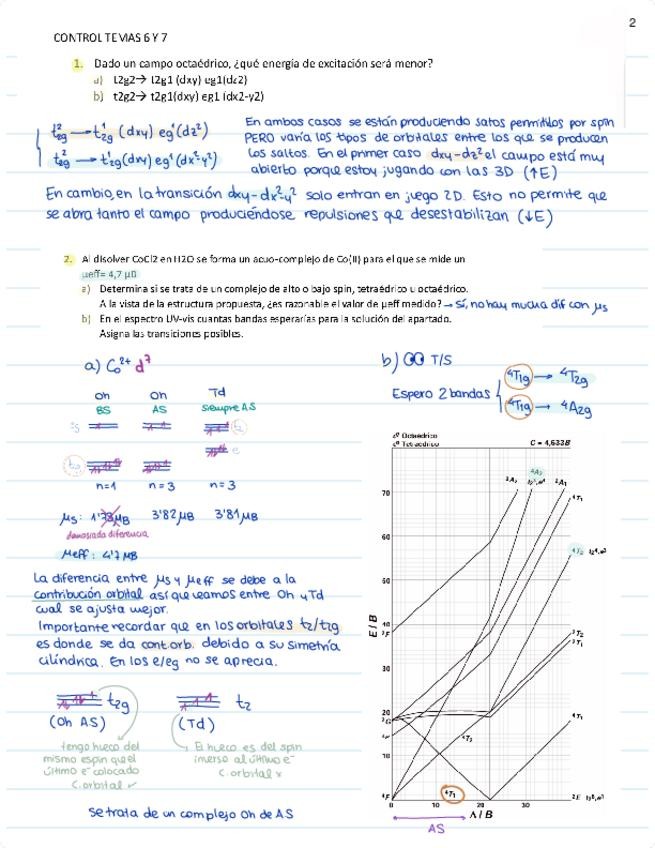 2
CONTROL TEMAS 6 Y 7
1. Dado un campo octaédrico, ¿qué energía de excitación será menor?
a) t2g2→ t2g1 (dxy) eg1(dz2)
b) t2g2→ t2g1(dxy) eg1 (dx2-y2)
t2g² → t2g¹ (dxy) eg¹(dz²)
t2g² → t2g¹(dxy) eg¹(dx²-y²)
En ambos casos se están produciendo satos permitidos por spin
PERO varía los tipos de orbitales entre los que se producen
los saltos. En el primer caso dxy-dz² el campo está muy
abierto porque estoy jugando con las 3D (↑E)
En cambio, en la transición dxy-dx²-y² solo entran en juego 2D. Esto no permite que
se abra tanto el campo produciéndose repulsiones que desestabilizan (↓E)
2. Al disolver CoCl2 en H2O se forma un acuo-complejo de Co(II) para el que se mide un
μeff= 4,7 μB
a) Determina si se trata de un complejo de alto o bajo spin, tetraédrico u octaédrico.
A la vista de la estructura propuesta, ¿es razonable el valor de μeff medido? → Sí, no hay mucha dif con μs
b) En el espectro UV-vis cuantas bandas esperarías para la solución del apartado.
Asigna las transiciones posibles.
a) Co²⁺ d⁷
Oh Oh Td
BS AS siempre AS
n=1 n=3 n=3
μs: 1'73μB 3'82μB 3'81μB
demasiada diferencia
μeff: 4'7 μB
La diferencia entre μs y μeff se debe a la
contribución orbital así que veamos entre Oh y Td
cual se ajusta mejor.
Importante recordar que en los orbitales t2/t2g
es donde se da cont.orb. debido a su simetría
cilíndrica. En los e/eg no se aprecia.
t2g
t2
(Oh AS)
(Td)
tengo hueco del
mismo espin que el
último e⁻ colocado
C.orbital ✓
El hueco es del spin
inverso al último e⁻
C.orbital x
se trata de un complejo Oh de AS
b) T/S
Espero 2 bandas
⁴T1g → ⁴T2g
⁴T1g → ⁴A2g
d⁷ Octaédrico
d³ Tetraédrico
C = 4,633B
E / B
70
60
50
40
30
20
10
0 10 20 30
⁴T₁
Δ / B
AS